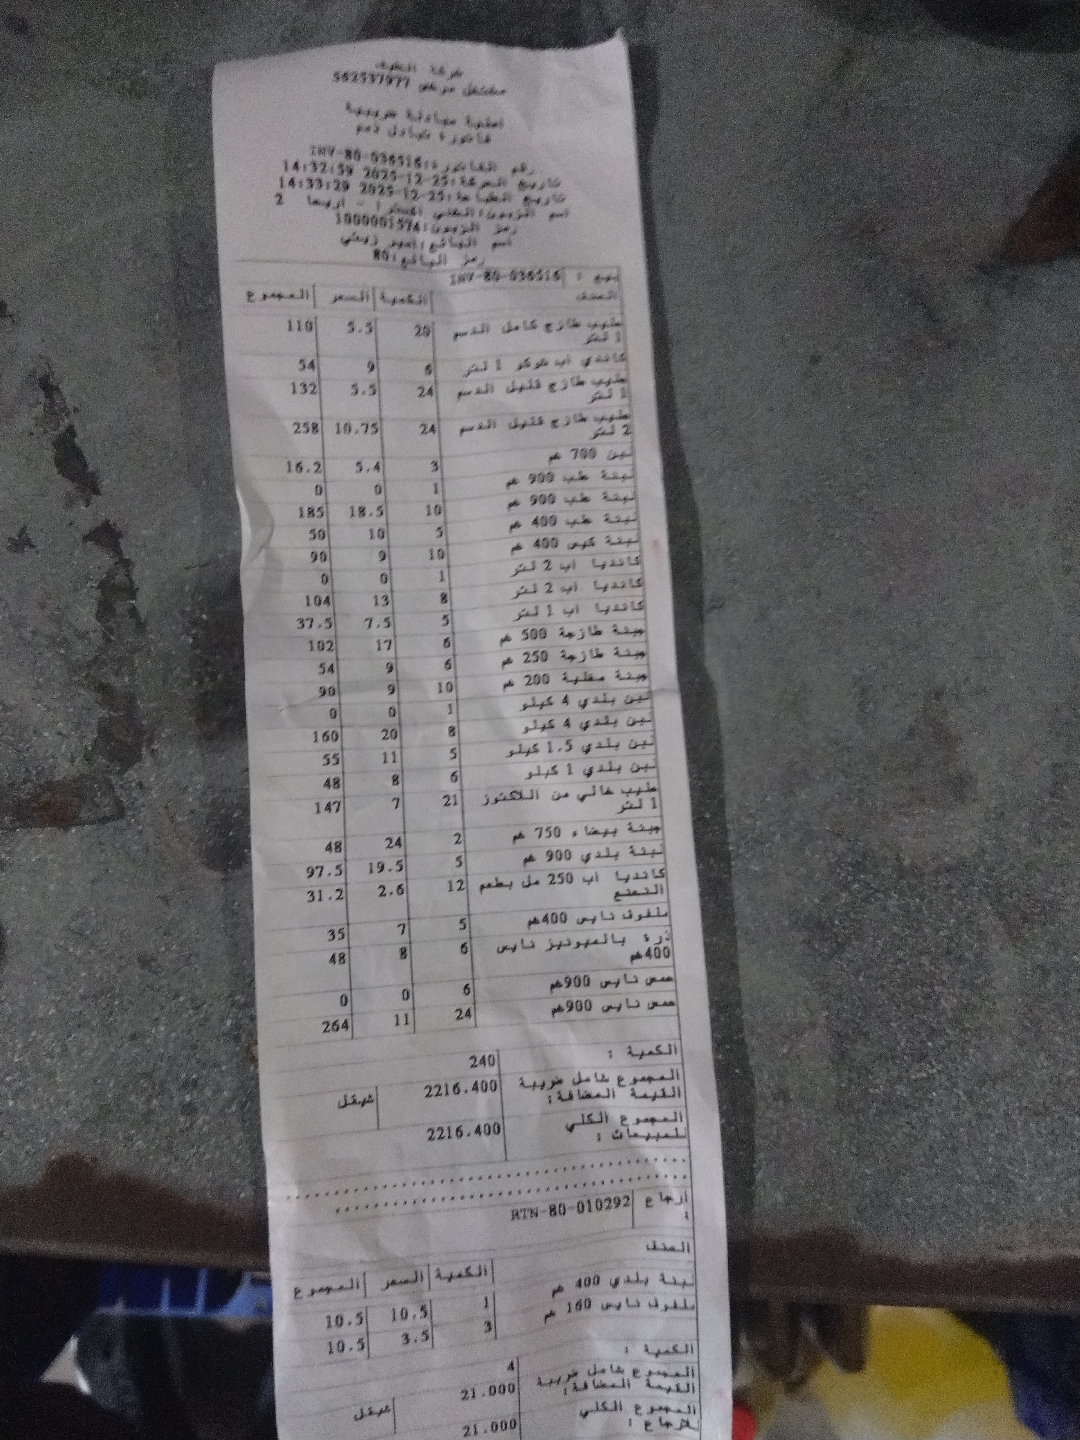 شركة الطيف
مشتغل مرخص 562537977
اصلية مبادلة ضريبية
فاتورة تبادل ذمم
رقم الفاتورة:INV-80-036516
تاريخ الحركة:25-12-2025 14:32:59
تاريخ الطباعة:25-12-2025 14:33:29
اسم الزبون: - اريحا 2
رمز الزبون:1000001574
اسم البائع:امير
رمز البائع:80
بيع : INV-80-036516
الصنف الكمية السعر المجموع
حليب طازج كامل الدسم 20 5.5 110
1 لتر
كاندي اب شوكو 1 لتر 6 9 54
حليب طازج قليل الدسم 24 5.5 132
1 لتر
حليب طازج قليل الدسم 24 10.75 258
2 لتر
لبن 700 غم 3 5.4 16.2
لبنة طب 900 غم 1 0 0
لبنة طب 900 غم 10 18.5 185
لبنة طب 400 غم 5 10 50
لبنة كيس 400 غم 10 9 90
كانديا اب 2 لتر 1 0 0
كانديا اب 2 لتر 8 13 104
كانديا اب 1 لتر 5 7.5 37.5
جبنة طازجة 500 غم 6 17 102
جبنة طازجة 250 غم 6 9 54
جبنة مغلية 200 غم 10 9 90
لبن بلدي 4 كيلو 1 0 0
لبن بلدي 4 كيلو 8 20 160
لبن بلدي 1.5 كيلو 5 11 55
لبن بلدي 1 كيلو 6 8 48
حليب خالي من اللاكتوز 21 7 147
1 لتر
جبنة بيضاء 750 غم 2 24 48
لبنة بلدي 900 غم 5 19.5 97.5
كانديا اب 250 مل بطعم 12 2.6 31.2
النعنع
ملفوف نايس 400غم 5 7 35
ذرة بالميونيز نايس 6 8 48
400غم
حمص نايس 900غم 6 0 0
حمص نايس 900غم 24 11 264
الكمية : 240
المجموع شامل ضريبة 2216.400 شيقل
القيمة المضافة:
المجموع الكلي 2216.400
للمبيعات :
ارجاع RTN-80-010292
:
الصنف الكمية السعر المجموع
لبنة بلدي 400 غم 1 10.5 10.5
ملفوف نايس 160 غم 3 3.5 10.5
الكمية : 4
المجموع شامل ضريبة 21.000 شيقل
القيمة المضافة:
المجموع الكلي 21.000
للارجاع :